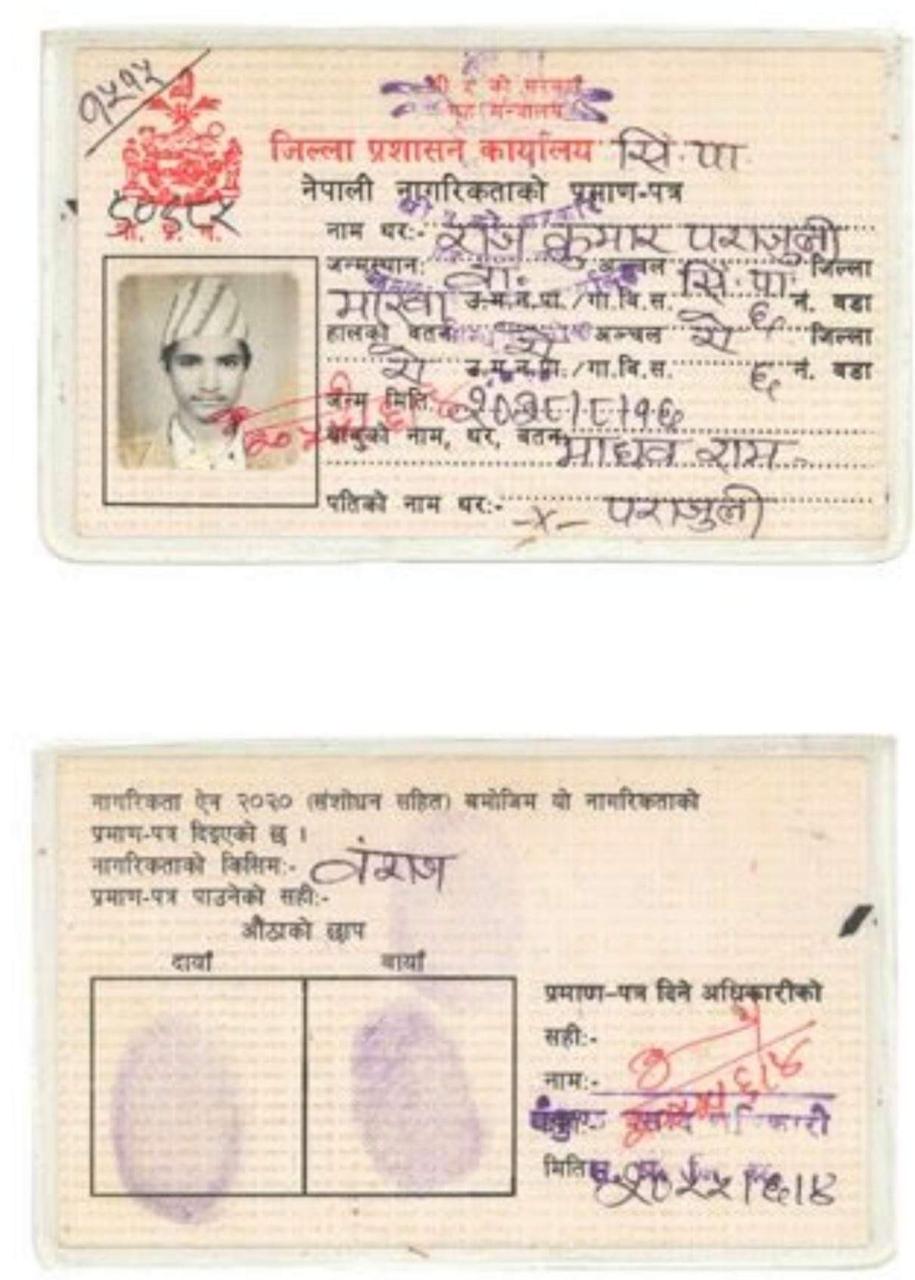 १५१५
श्री ५ को सरकार
गृह मन्त्रालय
जिल्ला प्रशासन कार्यालय सि.पा.
नेपाली नागरिकताको प्रमाण-पत्र
ना. प्र. नं.
नाम थर:- राज कुमार पराजुली
जन्मस्थान: वा. अञ्चल सि.पा. जिल्ला
माखा उ.म.न.पा./गा.वि.स. ६ नं. वडा
हालको वतन: ऐ अञ्चल ऐ जिल्ला
ऐ उ.म.न.पा./गा.वि.स. ६ नं. वडा
जन्म मिति:
बाबुको नाम, थर, वतन: माधव राम
पराजुली
पतिको नाम थर:- -x-
नागरिकता ऐन २०२० (संशोधन सहित) बमोजिम यो नागरिकताको
प्रमाण-पत्र दिइएको छ ।
नागरिकताको किसिम:- वंशज
प्रमाण-पत्र पाउनेको सही:-
औंठाको छाप
दायाँ बायाँ
प्रमाण-पत्र दिने अधिकारीको
सही:-
नाम:-
मिति